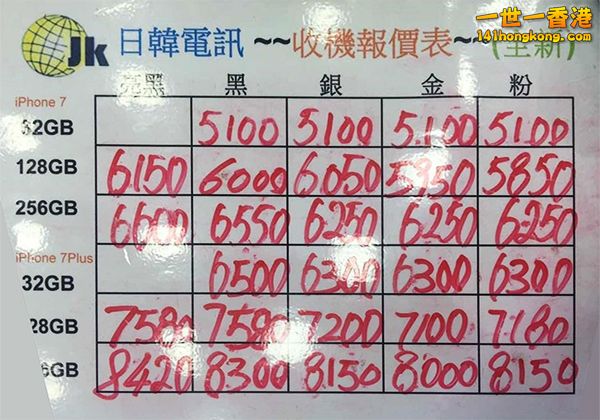 一世一香港
141hongkong.com
Jk 日韓電訊 ~~收機報價表~~(全新)
亮黑 黑 銀 金 粉
iPhone 7
32GB 5100 5100 5100 5100
128GB 6150 6000 6050 5850
256GB 6600 6550 6250 6250 6250
iPhone 7Plus
32GB 6500 6300 6300 6300
28GB 7580 7580 7200 7100 7180
6GB 8420 8300 8150 8000 8150